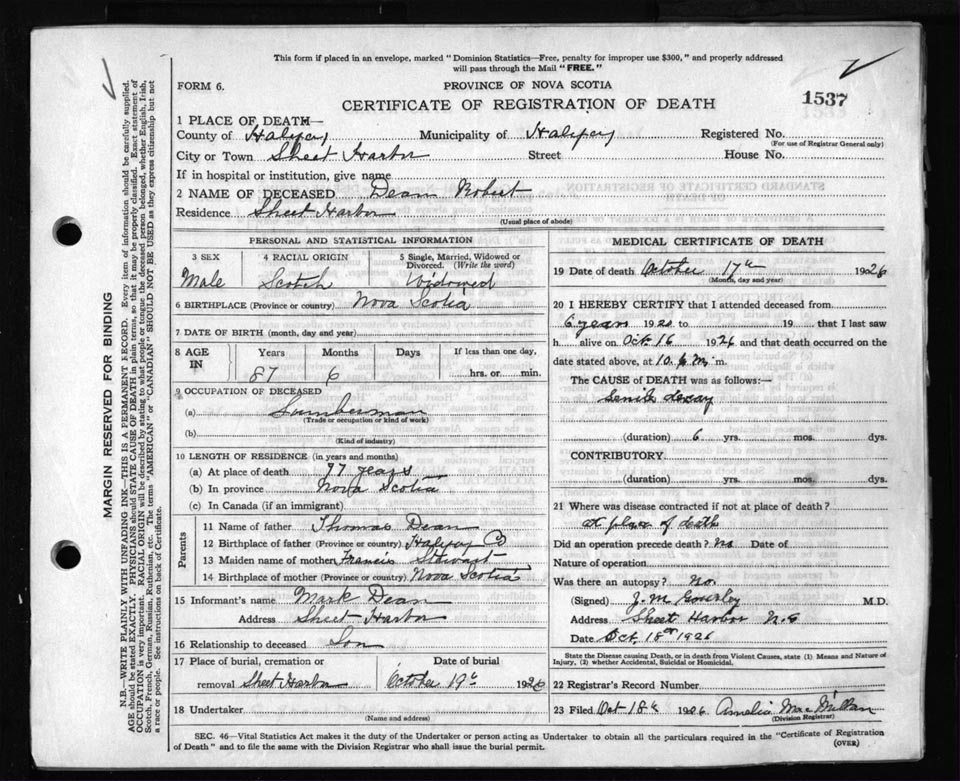 This form if placed in an envelope, marked "Dominion Statistics—Free, penalty for improper use $300," and properly addressed
will pass through the Mail "FREE."
FORM 6.
PROVINCE OF NOVA SCOTIA
CERTIFICATE OF REGISTRATION OF DEATH
1537
1 PLACE OF DEATH—
County of Halifax Municipality of Halifax Registered No.
(For use of Registrar General only)
City or Town Sheet Harbor Street House No.
If in hospital or institution, give name
2 NAME OF DECEASED Dean Robert
Residence Sheet Harbor
(Usual place of abode)
PERSONAL AND STATISTICAL INFORMATION
3 SEX 4 RACIAL ORIGIN 5 Single, Married, Widowed or
Divorced. (Write the word)
Male Scotch Widowed
6 BIRTHPLACE (Province or country) Nova Scotia
7 DATE OF BIRTH (month, day and year)
8 AGE IN Years Months Days If less than one day,
87 6 hrs. or min.
9 OCCUPATION OF DECEASED
(a) Lumberman
(Trade or occupation or kind of work)
(b)
(Kind of industry)
10 LENGTH OF RESIDENCE (in years and months)
(a) At place of death years
(b) In province Nova Scotia
(c) In Canada (if an immigrant)
Parents
11 Name of father Thomas Dean
12 Birthplace of father (Province or country) Halifax Co
13 Maiden name of mother Francis Stewart
14 Birthplace of mother (Province or country) Nova Scotia
15 Informant's name Mark Dean
Address Sheet Harbor
16 Relationship to deceased Son
17 Place of burial, cremation or Date of burial
removal Sheet Harbor October 19th 1926
18 Undertaker
(Name and address)
MEDICAL CERTIFICATE OF DEATH
19 Date of death October 17th 1926
(Month, day and year)
20 I HEREBY CERTIFY that I attended deceased from
6 years 1920 to 19 that I last saw
h alive on Oct. 16 1926 and that death occurred on
date stated above, at 10. m.
The CAUSE of DEATH was as follows:—
Senile decay
(duration) 6 yrs. mos. dys.
CONTRIBUTORY
(duration) yrs. mos. dys.
21 Where was disease contracted if not at place of death?
At place of death
Did an operation precede death? No Date of
Nature of operation
Was there an autopsy? No.
(Signed) J. M. Gourley M.D.
Address Sheet Harbor N.S
Date Oct. 18th 1926
State the Disease causing Death, or in death from Violent Causes, state (1) Means and Nature of
Injury, (2) whether Accidental, Suicidal or Homicidal.
22 Registrar's Record Number
23 Filed Oct 18th 1926 Amelia MacMillan
(Division Registrar)
SEC. 46—Vital Statistics Act makes it the duty of the Undertaker or person acting as Undertaker to obtain all the particulars required in the "Certificate of Registration
of Death" and to file the same with the Division Registrar who shall issue the burial permit.
(OVER)
MARGIN RESERVED FOR BINDING
N.B.—WRITE PLAINLY WITH UNFADING INK—THIS IS A PERMANENT RECORD. Every item of information should be carefully supplied.
AGE should be stated EXACTLY. PHYSICIANS should STATE CAUSE OF DEATH in plain terms, so that it may be properly classified. Exact statement of
OCCUPATION is very important. RACIAL ORIGIN will be described by stating to what people or tongue the deceased person belonged, whether English, Irish,
Scotch, French, German, Russian, Ruthenian, etc. The terms "AMERICAN" or "CANADIAN" SHOULD NOT BE USED as they express citizenship but not
a race or people. See instructions on back of Certificate.